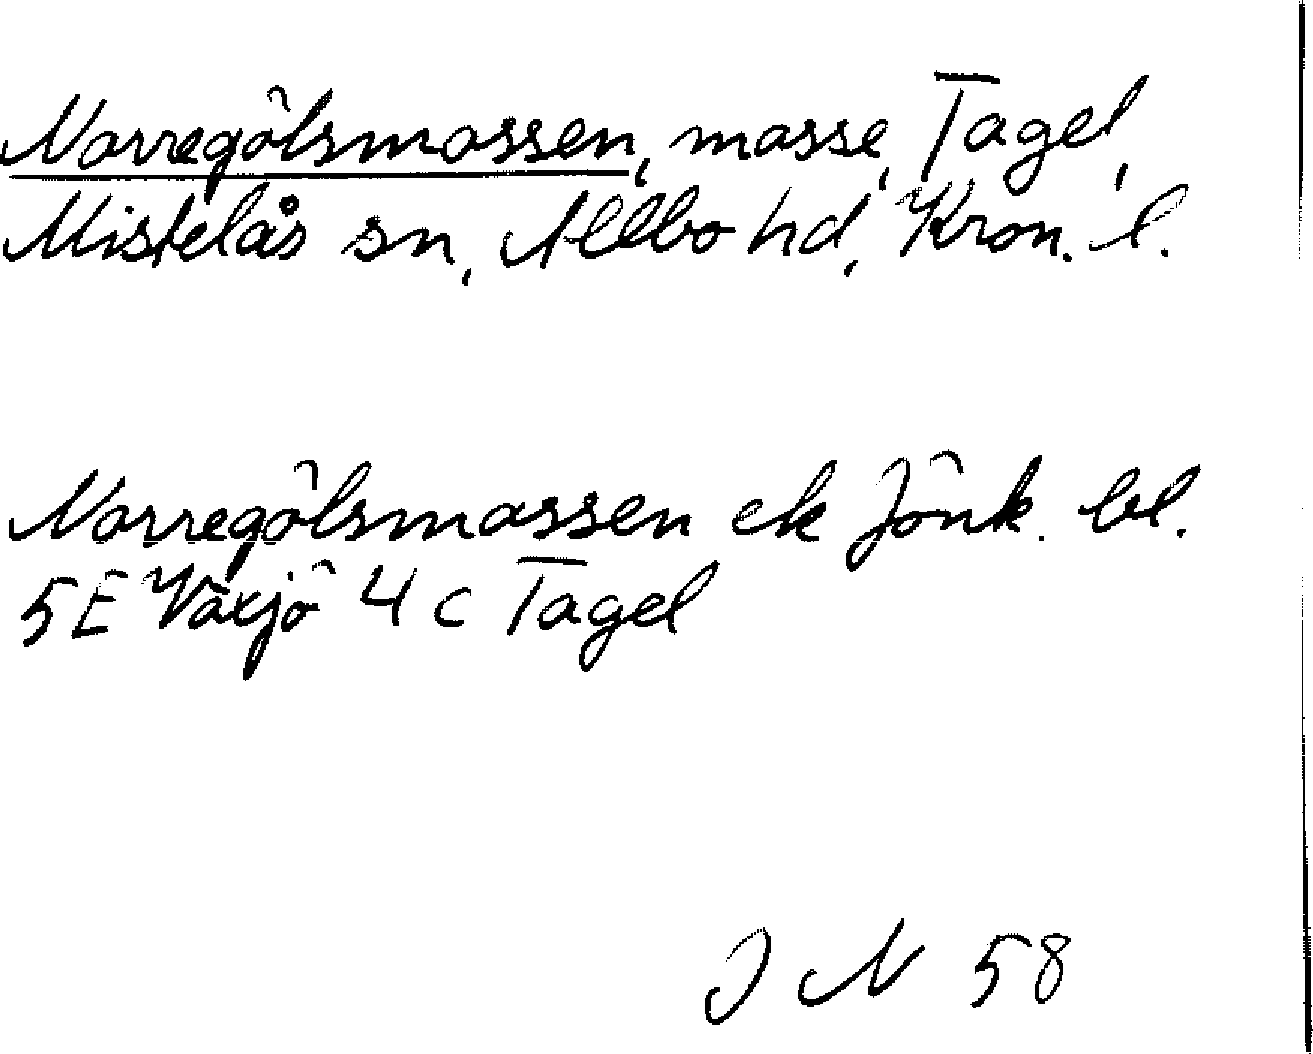 Norregölsmossen, mosse, Tagel,
Mistelås sn, Allbo hd, Kron. l.
Norregölsmossen ek Jönk. bl.
5E Växjö 4 c Tagel
J N 58